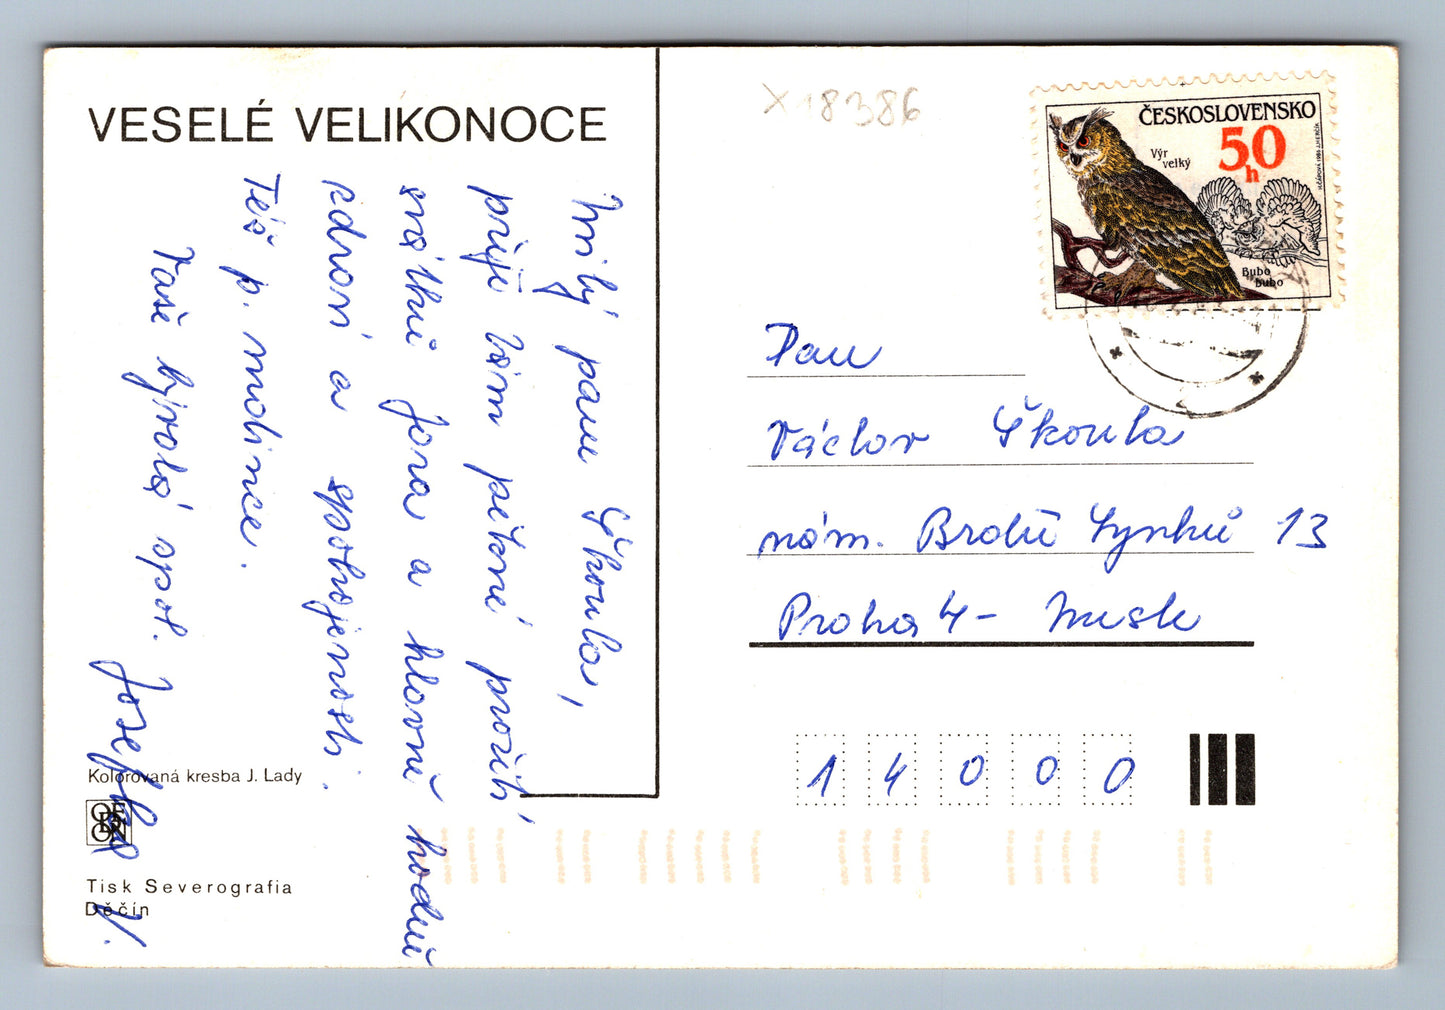 VESELÉ VELIKONOCE
Milý pane Škoula,
přeji Vám pěkné prožití
svátků jara a hlavně hodně
zdraví a spokojenosti.
Též p. malince.
Vaše bývalá spol.
Josefka V.
Kolorovaná kresba J. Lady
ODEON
Tisk Severografia
Děčín
X 18386
ČESKOSLOVENSKO
50 h
Výr velký
Bubo bubo
Pan
Václav Škoula
nám. Bratří Synků 13
Praha 4 - Nusle
14000